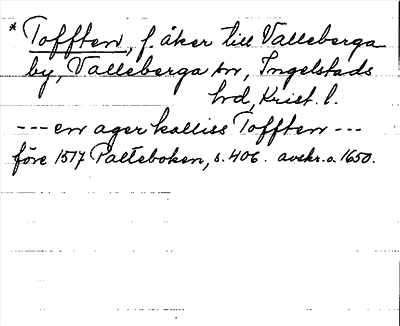 * Tofften, f. åker till Valleberga
by, Valleberga sn, Ingelstads
hrd, Krist. l.
--- en ager kalliss Tofften ---
före 1517 Palteboken, s. 406. avskr. o. 1650.